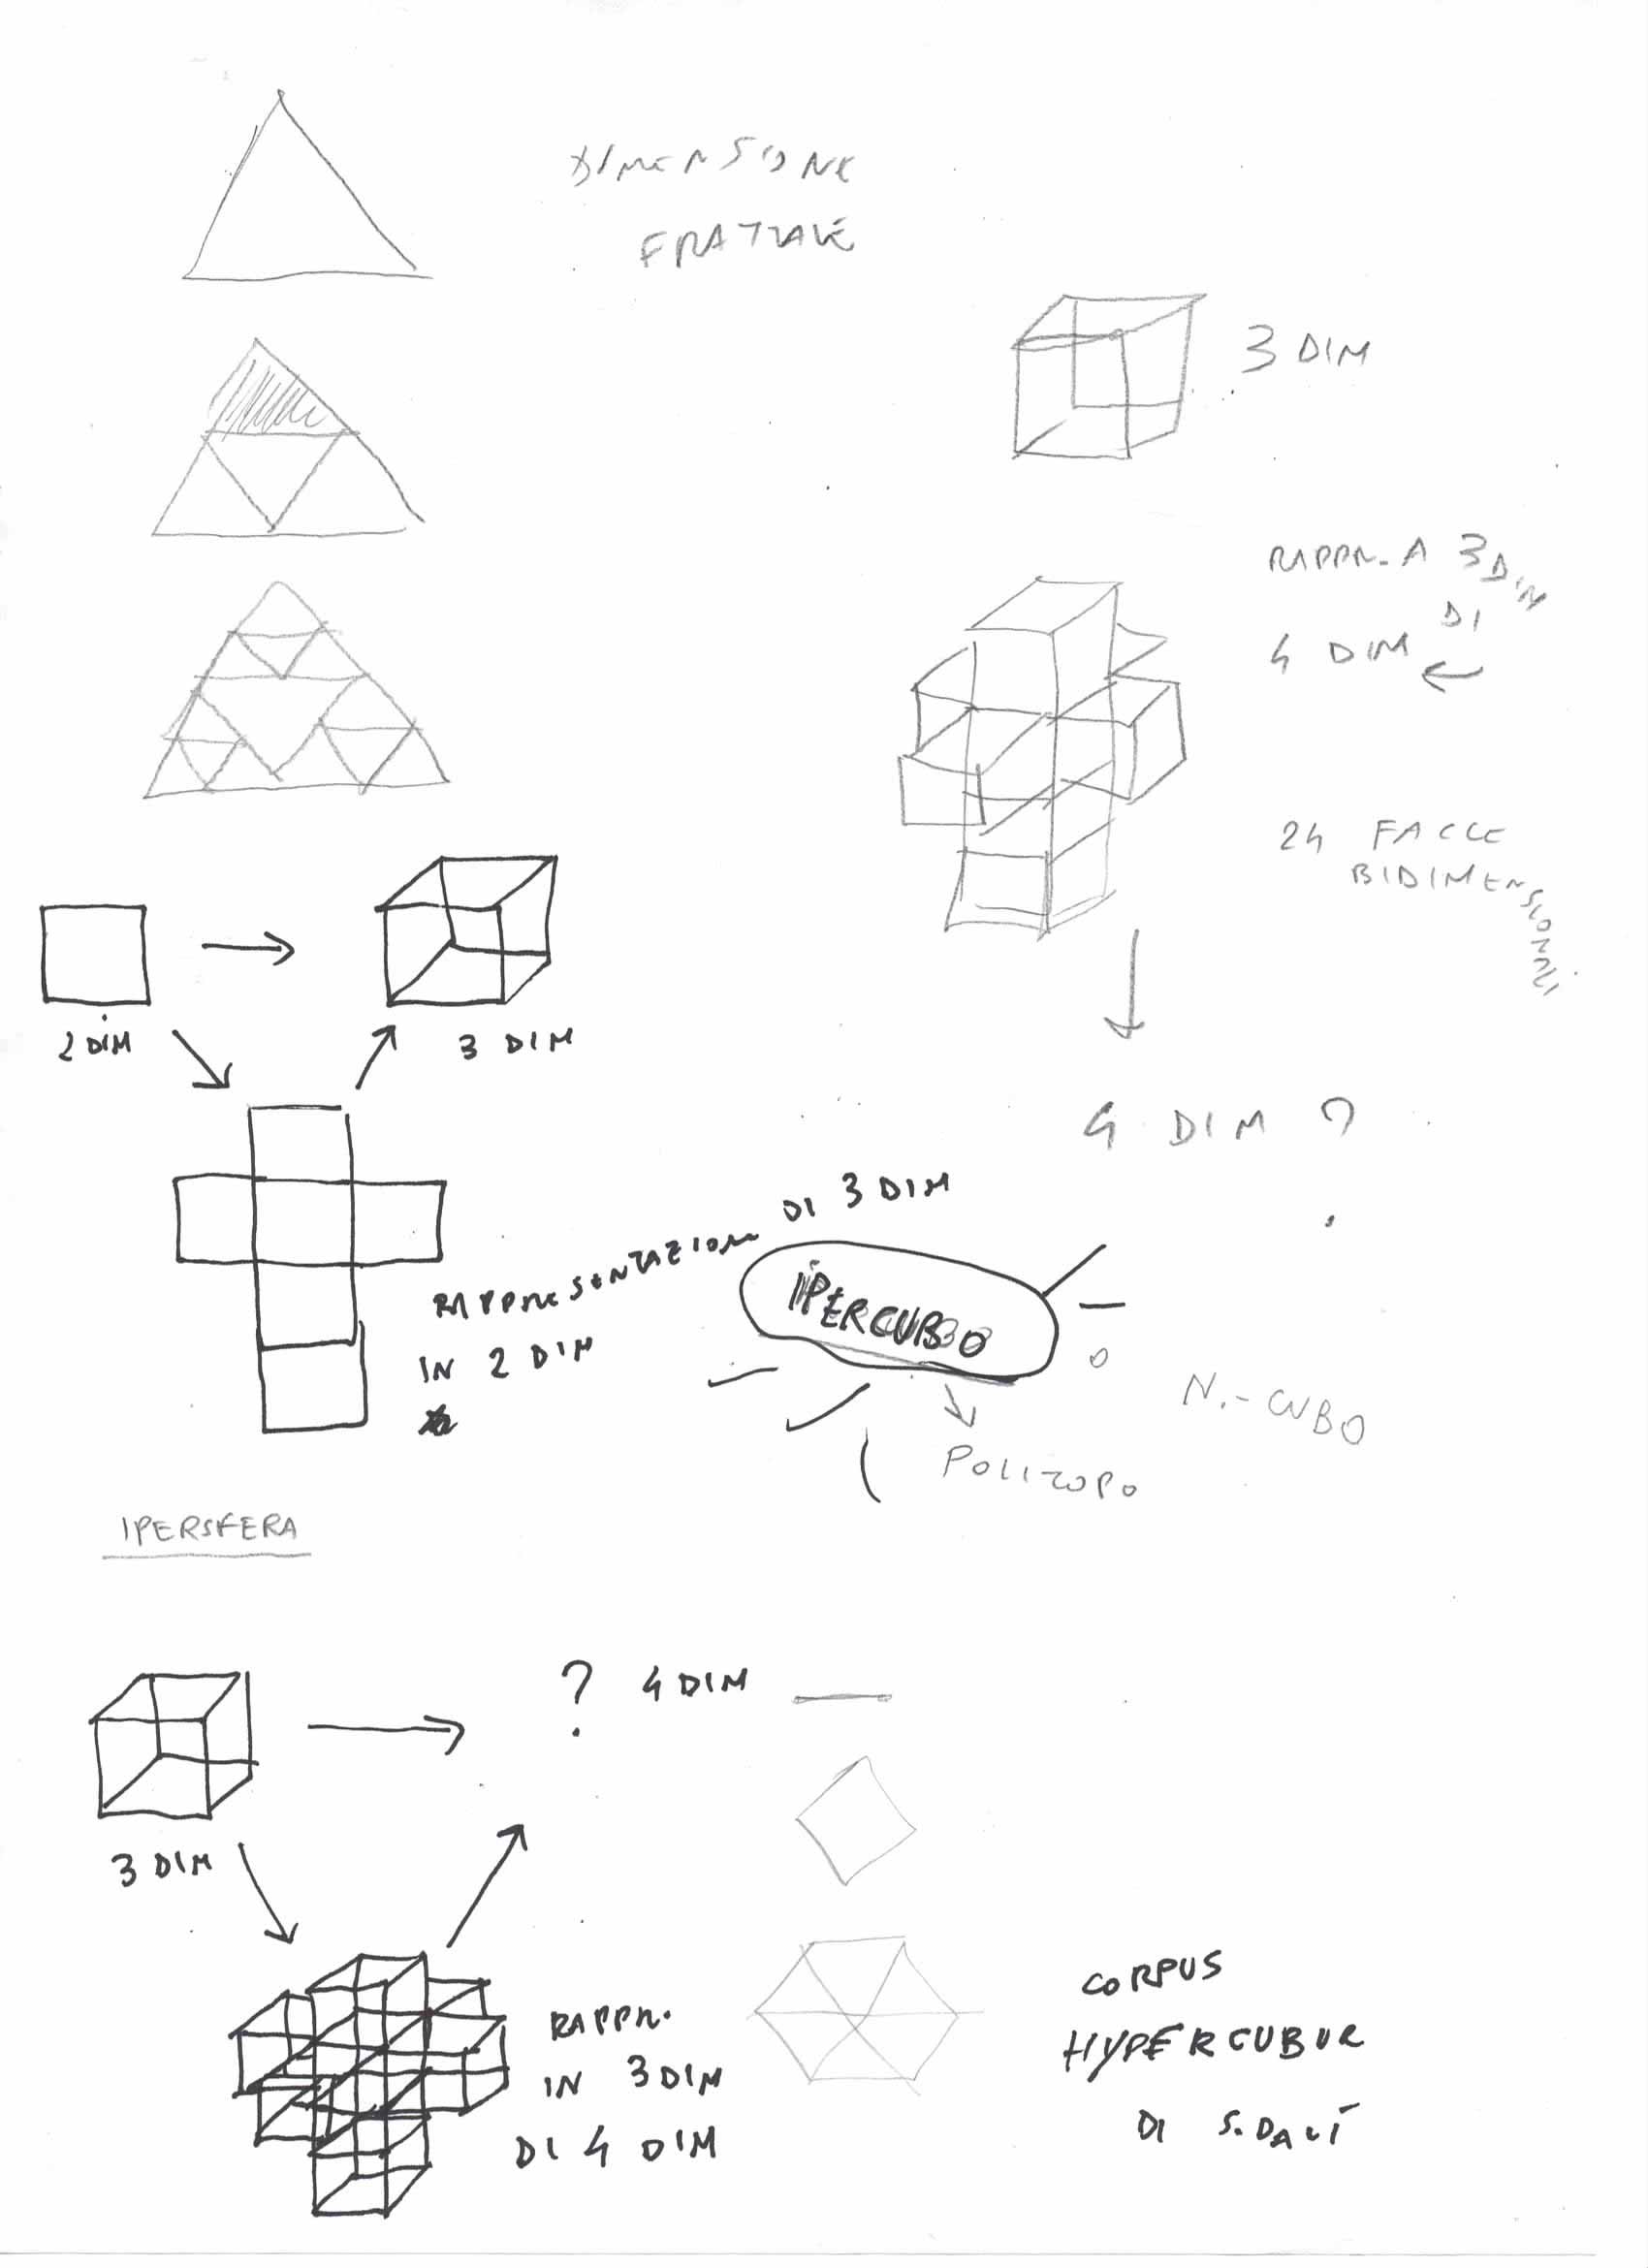 DIMENSIONE
FRATTALE
3 DIM
RAPPR. A 3 DIM
DI
4 DIM
24 FACCE
BIDIMENSIONALI
2 DIM
3 DIM
4 DIM ?
RAPPRESENTAZIONE DI 3 DIM
IN 2 DIM
IPERCUBO
N.-CUBO
POLITOPO
IPERSFERA
? 4 DIM
3 DIM
RAPPR.
IN 3 DIM
DI 4 DIM
CORPUS
HYPERCUBUR
DI S. DALÍ